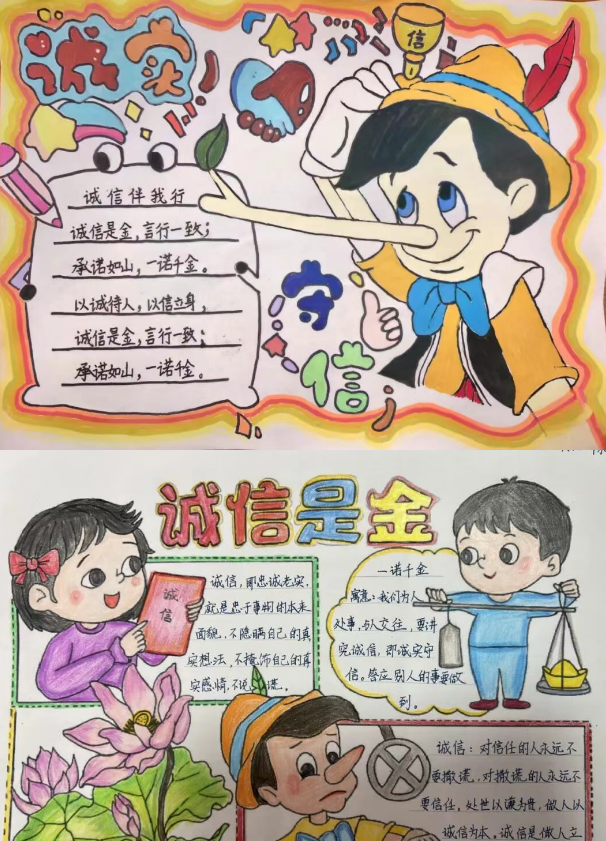 诚实
信
诚信伴我行
诚信是金,言行一致;
承诺如山,一诺千金。
以诚待人,以信立身,
诚信是金,言行一致;
承诺如山,一诺千金。
守
信
诚信是金
诚信
诚信,即忠诚老实,
就是忠于事物的本来
面貌,不隐瞒自己的真
实想法,不掩饰自己的真
实感情,不说谎。
一诺千金
寓意:我们为人
处事,与人交往,要讲
究诚信,即诚实守
信。答应别人的事要做
到。
诚信:对信任的人永远不
要撒谎,对撒谎的人永远不
要信任,处世以谦为贵,做人以
诚信为本。诚信是做人立